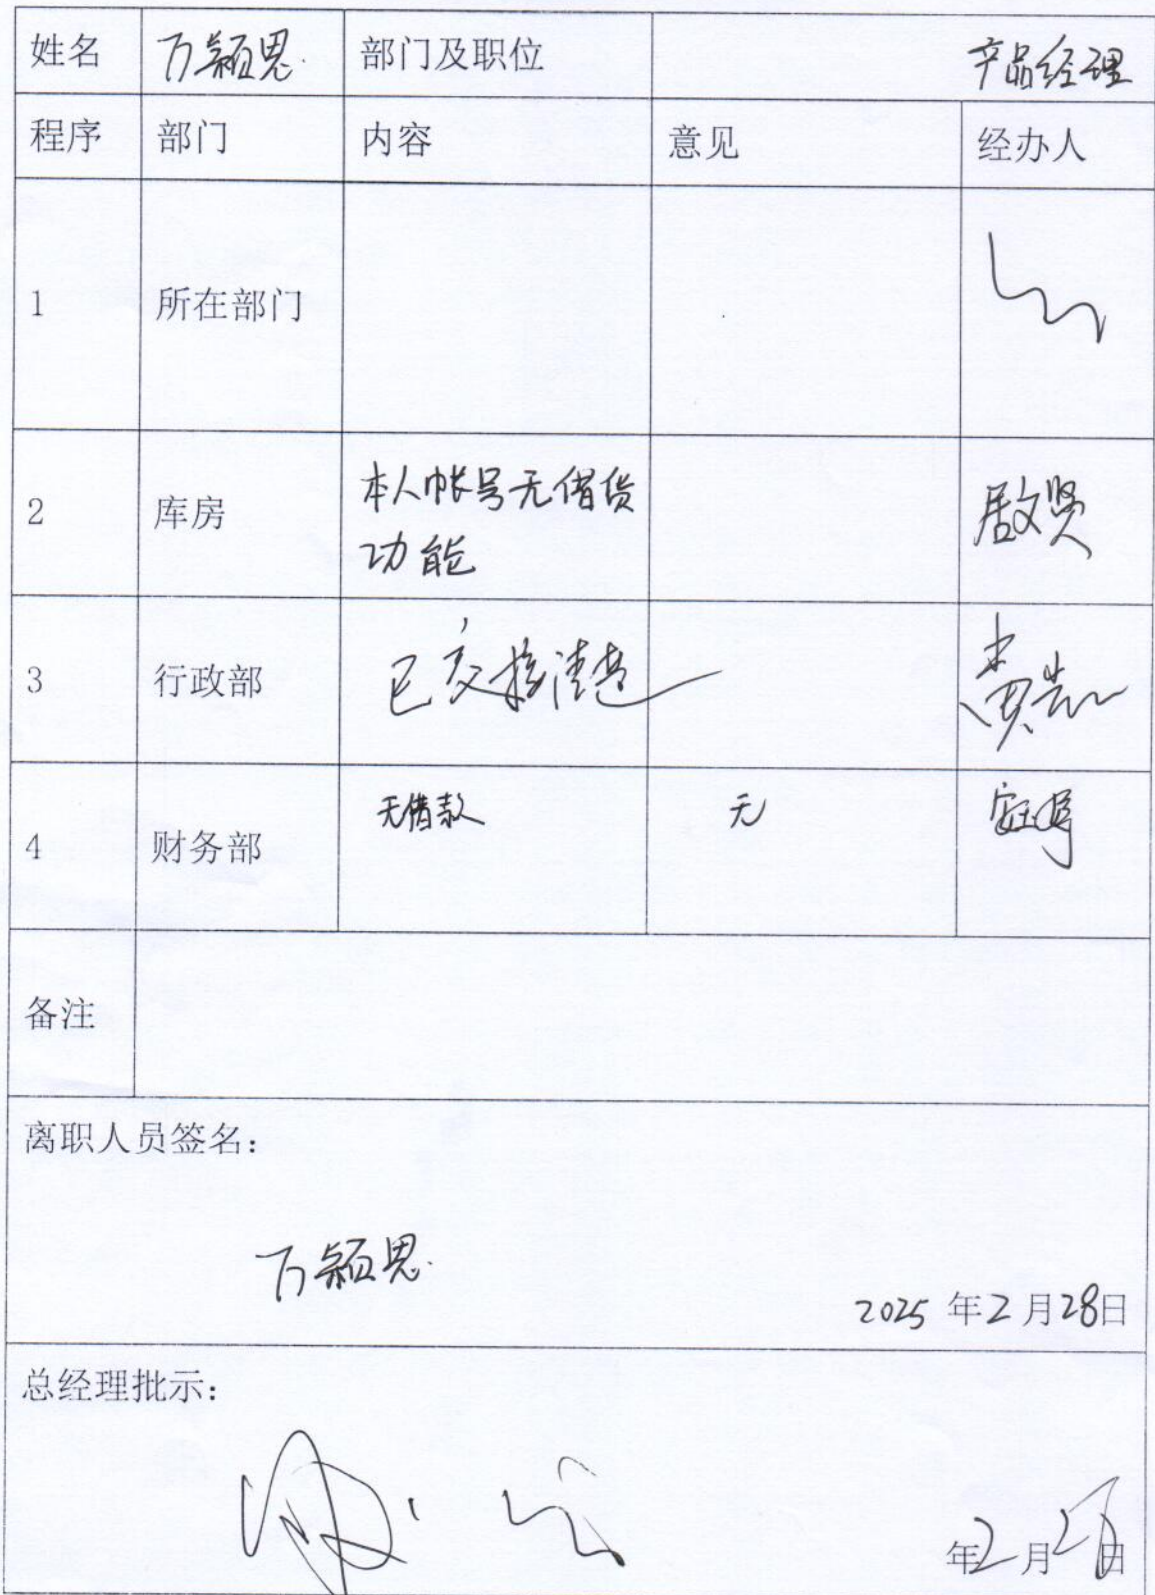 姓名 万颖思 部门及职位 产品经理
程序 部门 内容 意见 经办人
1 所在部门
2 库房 本人帐号无借货
功能
3 行政部 已交接清楚
4 财务部 无借款 无
备注
离职人员签名：
万颖思
2025年2月28日
总经理批示：
年2月 日